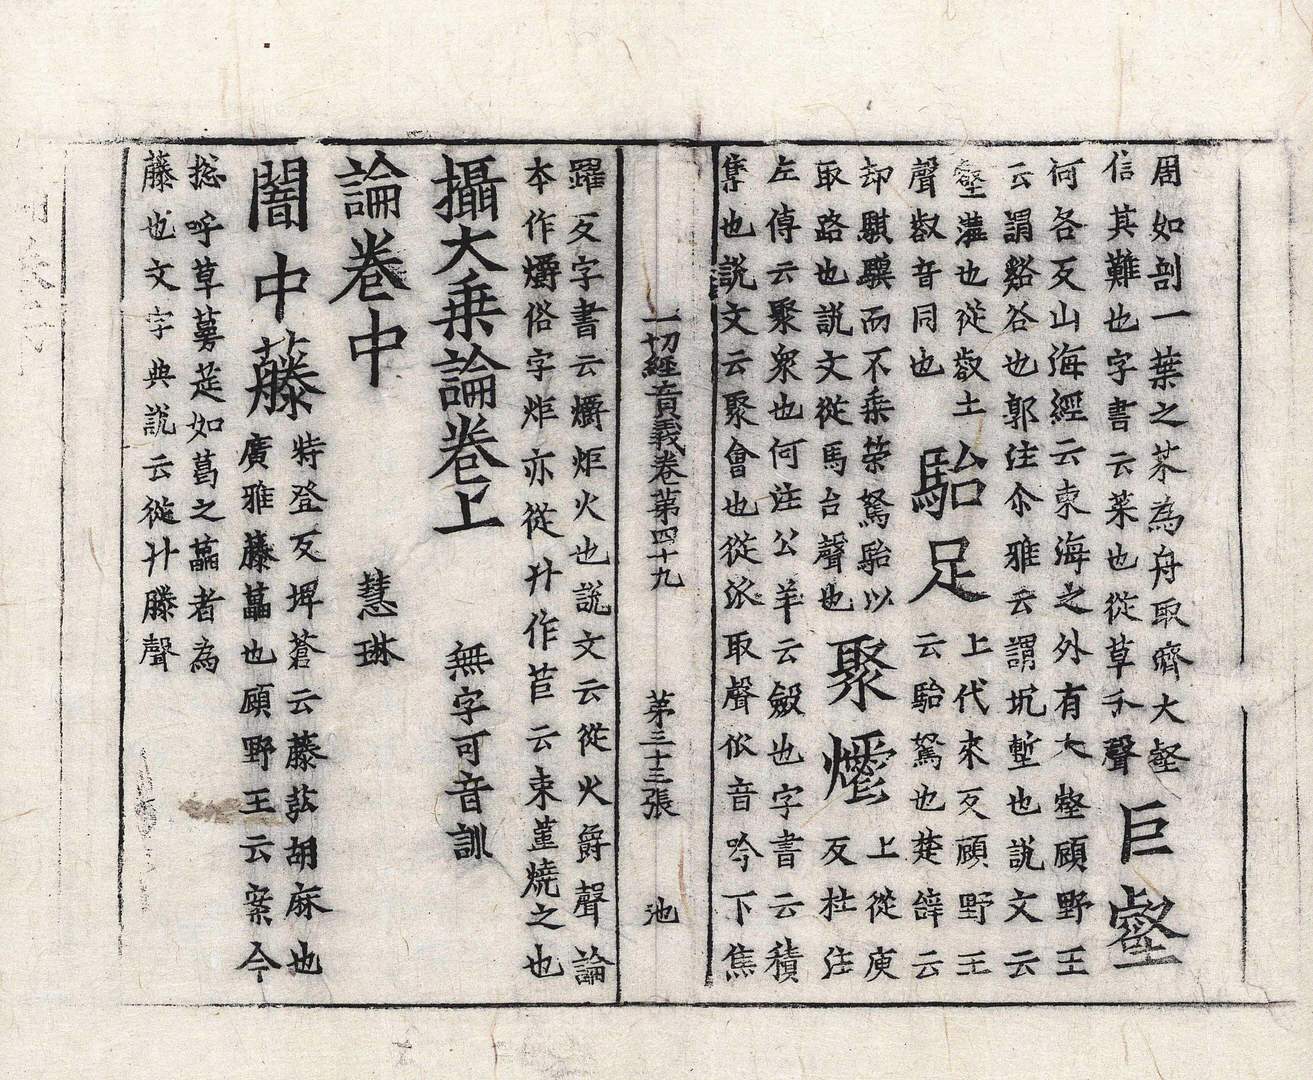 周如剖一葉之菜為舟取濟大壑
信其難也字書云菜也從草聲
巨壑
何各反山海經云東海之外有大壑顧野王
云謂谿谷也郭注尒雅云謂坑壍也說文云
壑灘也從㕡土
聲㕡音同也
駘足
上代來反顧野王
云駘駑也楚辭云
却騏驥而不乗策駑駘以
取路也說文從馬台聲也
聚
上從庾
反杜注
左傳云聚衆也何注公羊云斂也字書云積
也說文云聚會也從㐺取聲㐺音吟下焦
一切經音義卷第四十九 第三十三張 池
躍反字書云爝炬火也說文云從火爵聲論
本作爝俗字炬亦從廾作苣云束葦燒之也
攝大乗論卷上 無字可音訓
論卷中 慧琳
闇中藤
特登反埤蒼云藤苰胡麻也
廣雅藤藟也顧野王云案今
捴呼草蔓莚如葛之藟者為
藤也文字典說云從廾滕聲